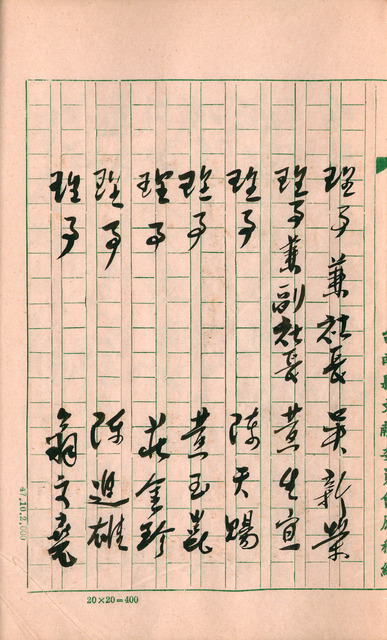 理事兼社長 吳新榮
理事兼副社長 黃生宜
理事 陳天賜
理事 黃玉崑
理事 莊金珍
理事 陳進雄
理事
47.10.2,000
20×20=400